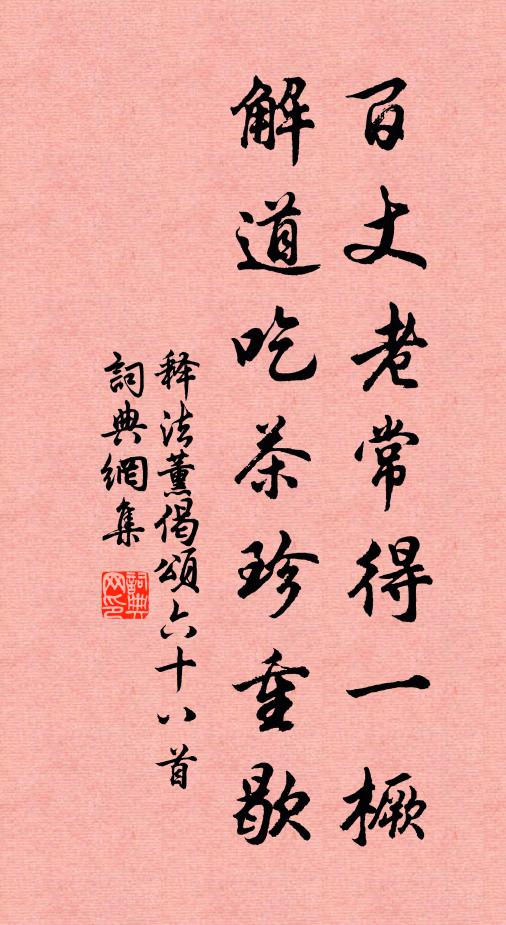 百丈老常得一橛
解道吃茶珍重歇
释法薰偈頌六十八首
詞典網集
詞典网印